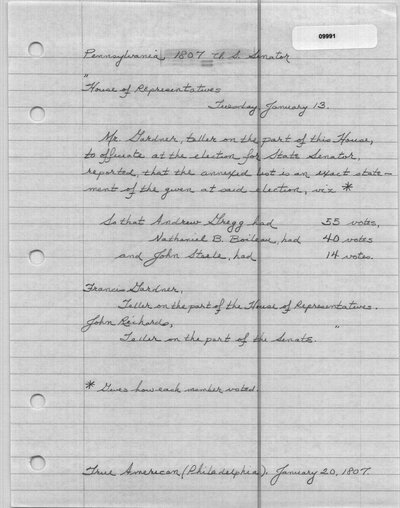 09991
Pennsylvania 1807 U. S. Senator
"
House of Representatives
Tuesday, January 13.
Mr. Gardner, teller on the part of this House,
to officiate at the election for State Senator,
reported, that the annexed list is an exact state-
ment of the given at said election, viz *
So that Andrew Gregg had 55 votes,
Nathaniel B. Boileau, had 40 votes
and John Steele, had 14 votes.
Francis Gardner,
Teller on the part of the House of Representatives.
John Richards, "
Teller on the part of the Senate.
* Gives how each member voted.
True American (Philadelphia). January 20, 1807.